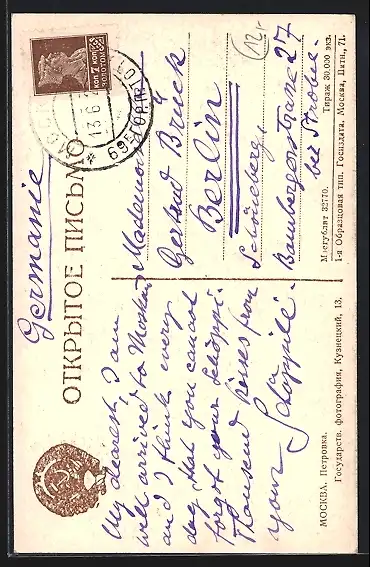 Germanie
ОТКРЫТОЕ ПИСЬМО
КОП 7 КОП
ЗОЛОТОМ
13.6
12,-
My dearest, I am
well arrived to Moskau
and I think every
day, that you cannot
forget your Schöppi.
Thousend kisses from
your Schöppili.
Mademois.
Gertrud Brück
Berlin
Schöneberg,
Bambergerstrasse 27
bei Strobel.
МОСКВА. Петровка.
Государств. фотография, Кузнецкий, 13.
Мосгублит 32770. Тираж 30.000 экз.
1-я Образцовая тип. Госиздата. Москва, Пятн., 71.